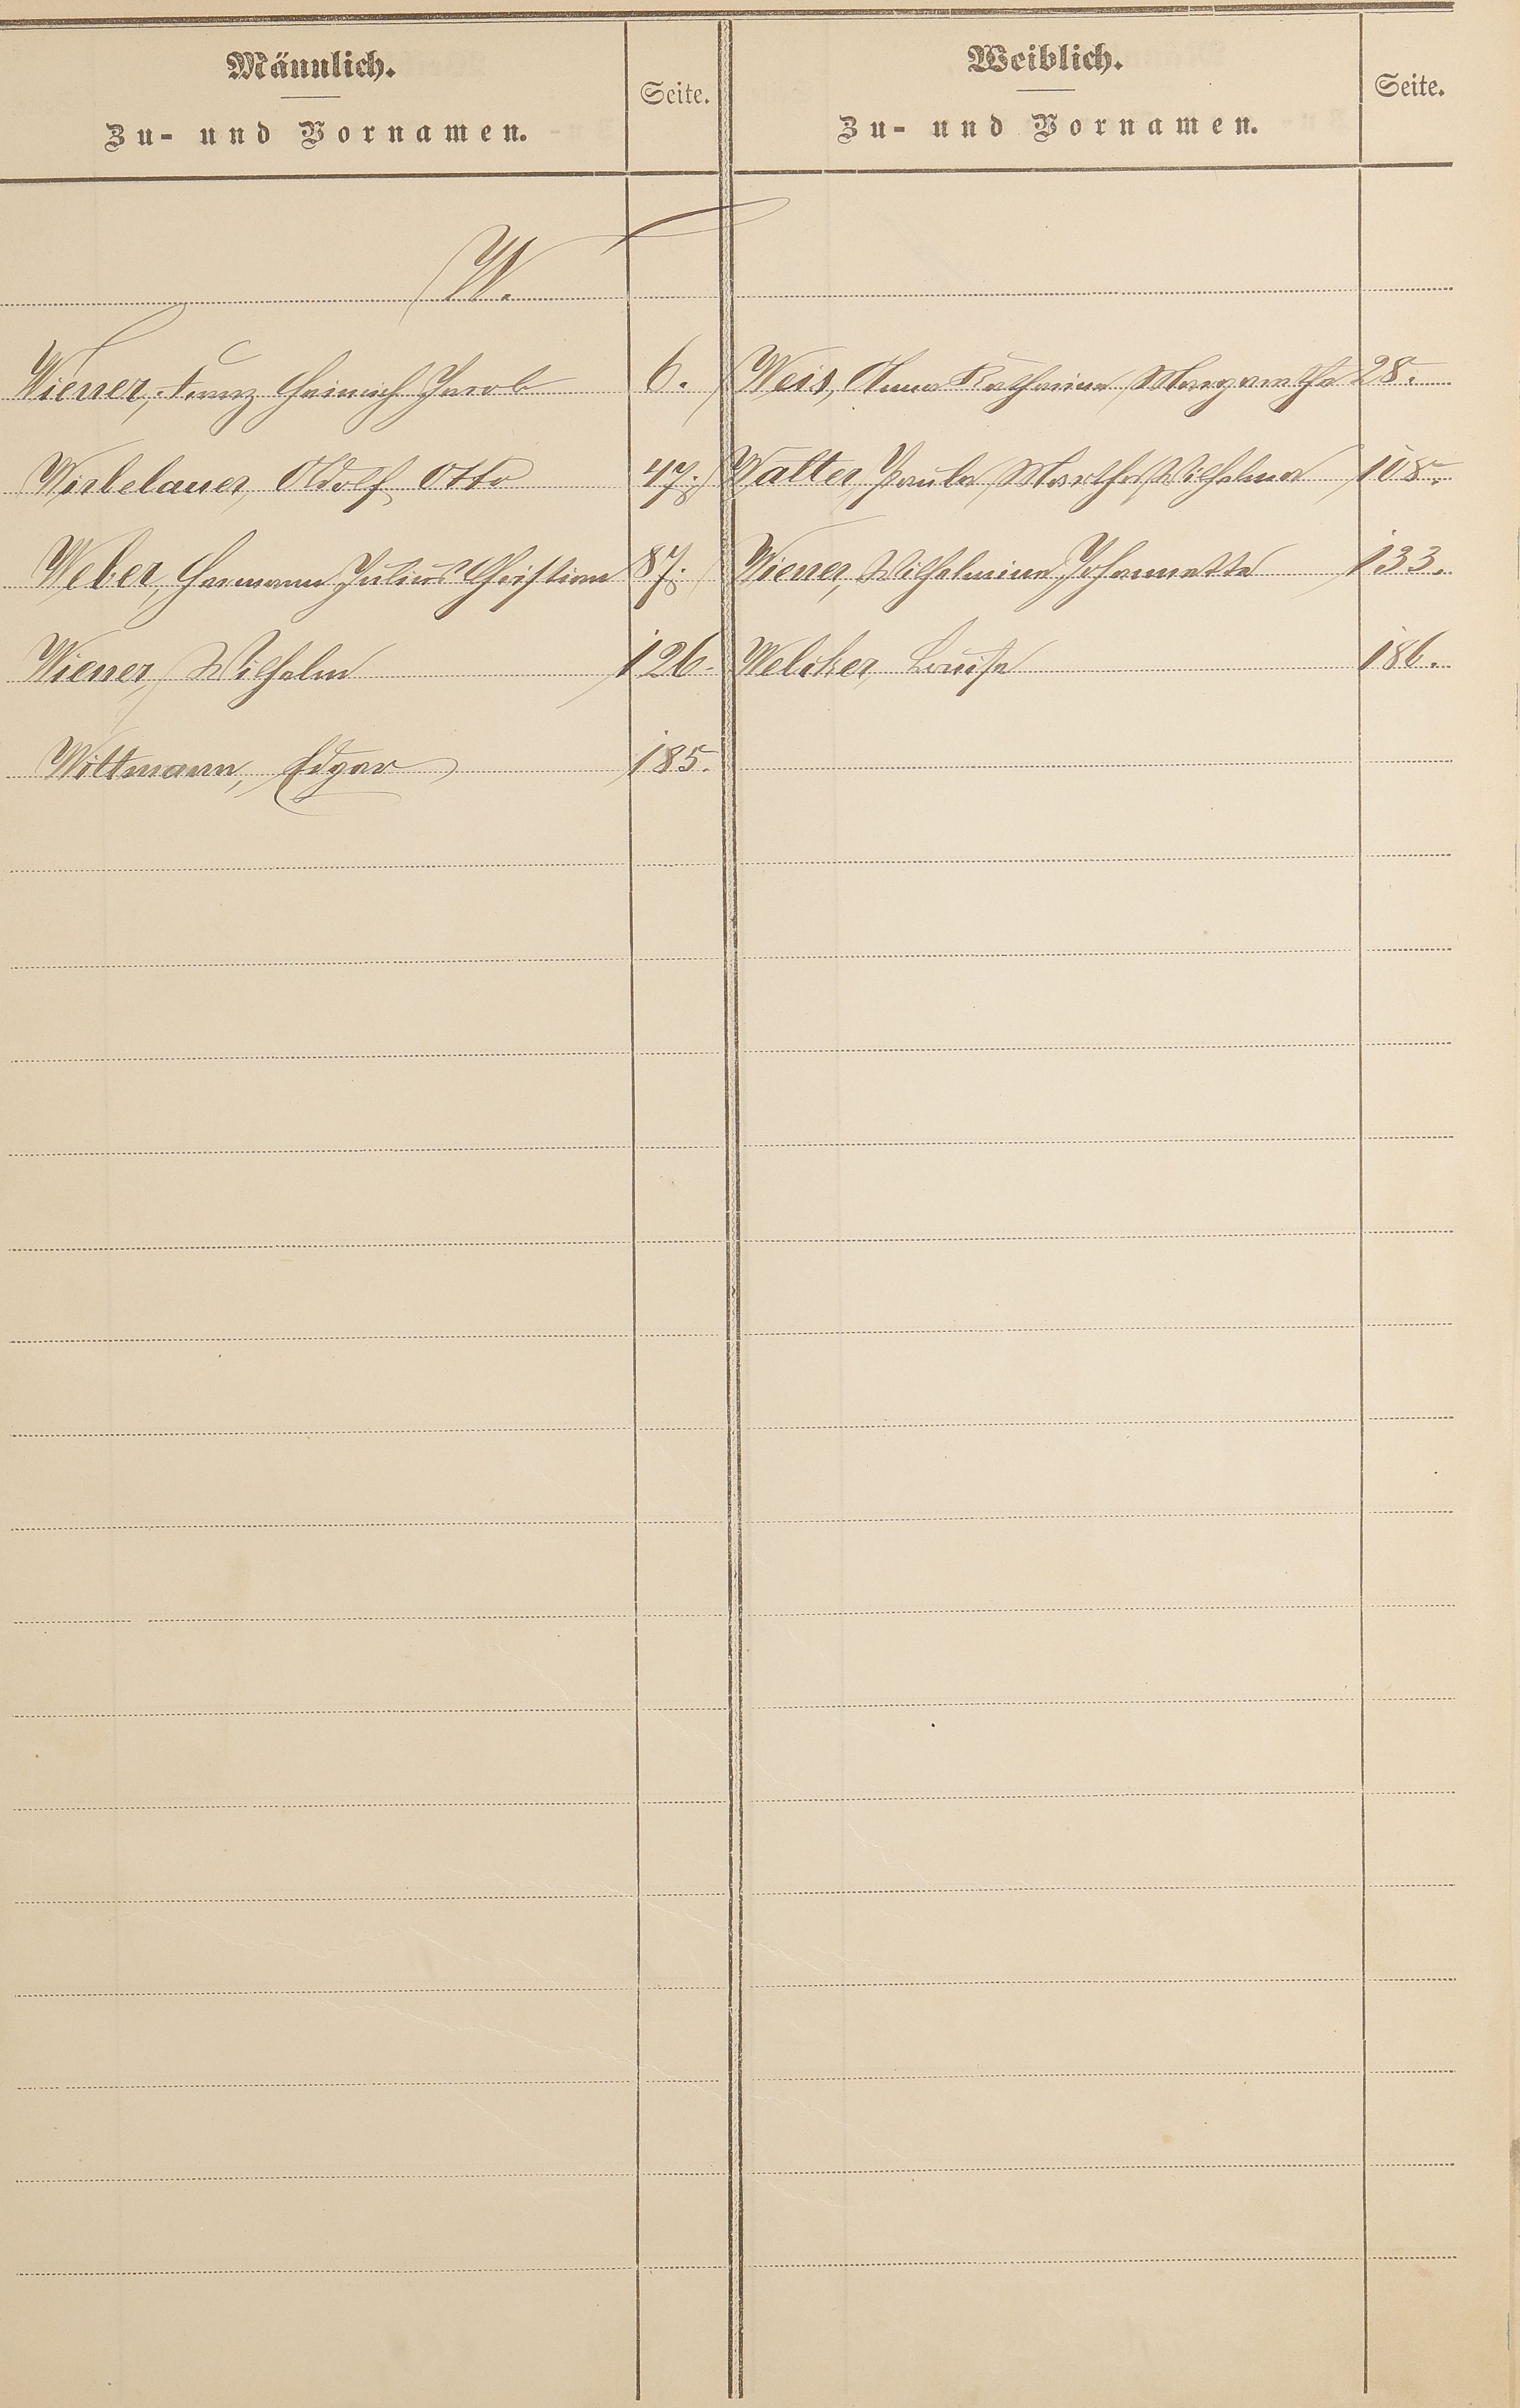 Männlich.
Zu- und Vornamen.
Seite.
Weiblich.
Zu- und Vornamen.
Seite.
W.
Wiener, Franz Heinrich Jacob 6. Weis, Anna Katharina Margaretha 28.
Wirbelauer, Adolf Otto 47. Walter, Paula Martha Wilhelma 108.
Weber, Hermann Julius Christian 87. Wiener, Wilhelmine Johannette 133.
Wiener, Wilhelm 126. Welcker, Louise 186.
Wittmann, Edgar 185.